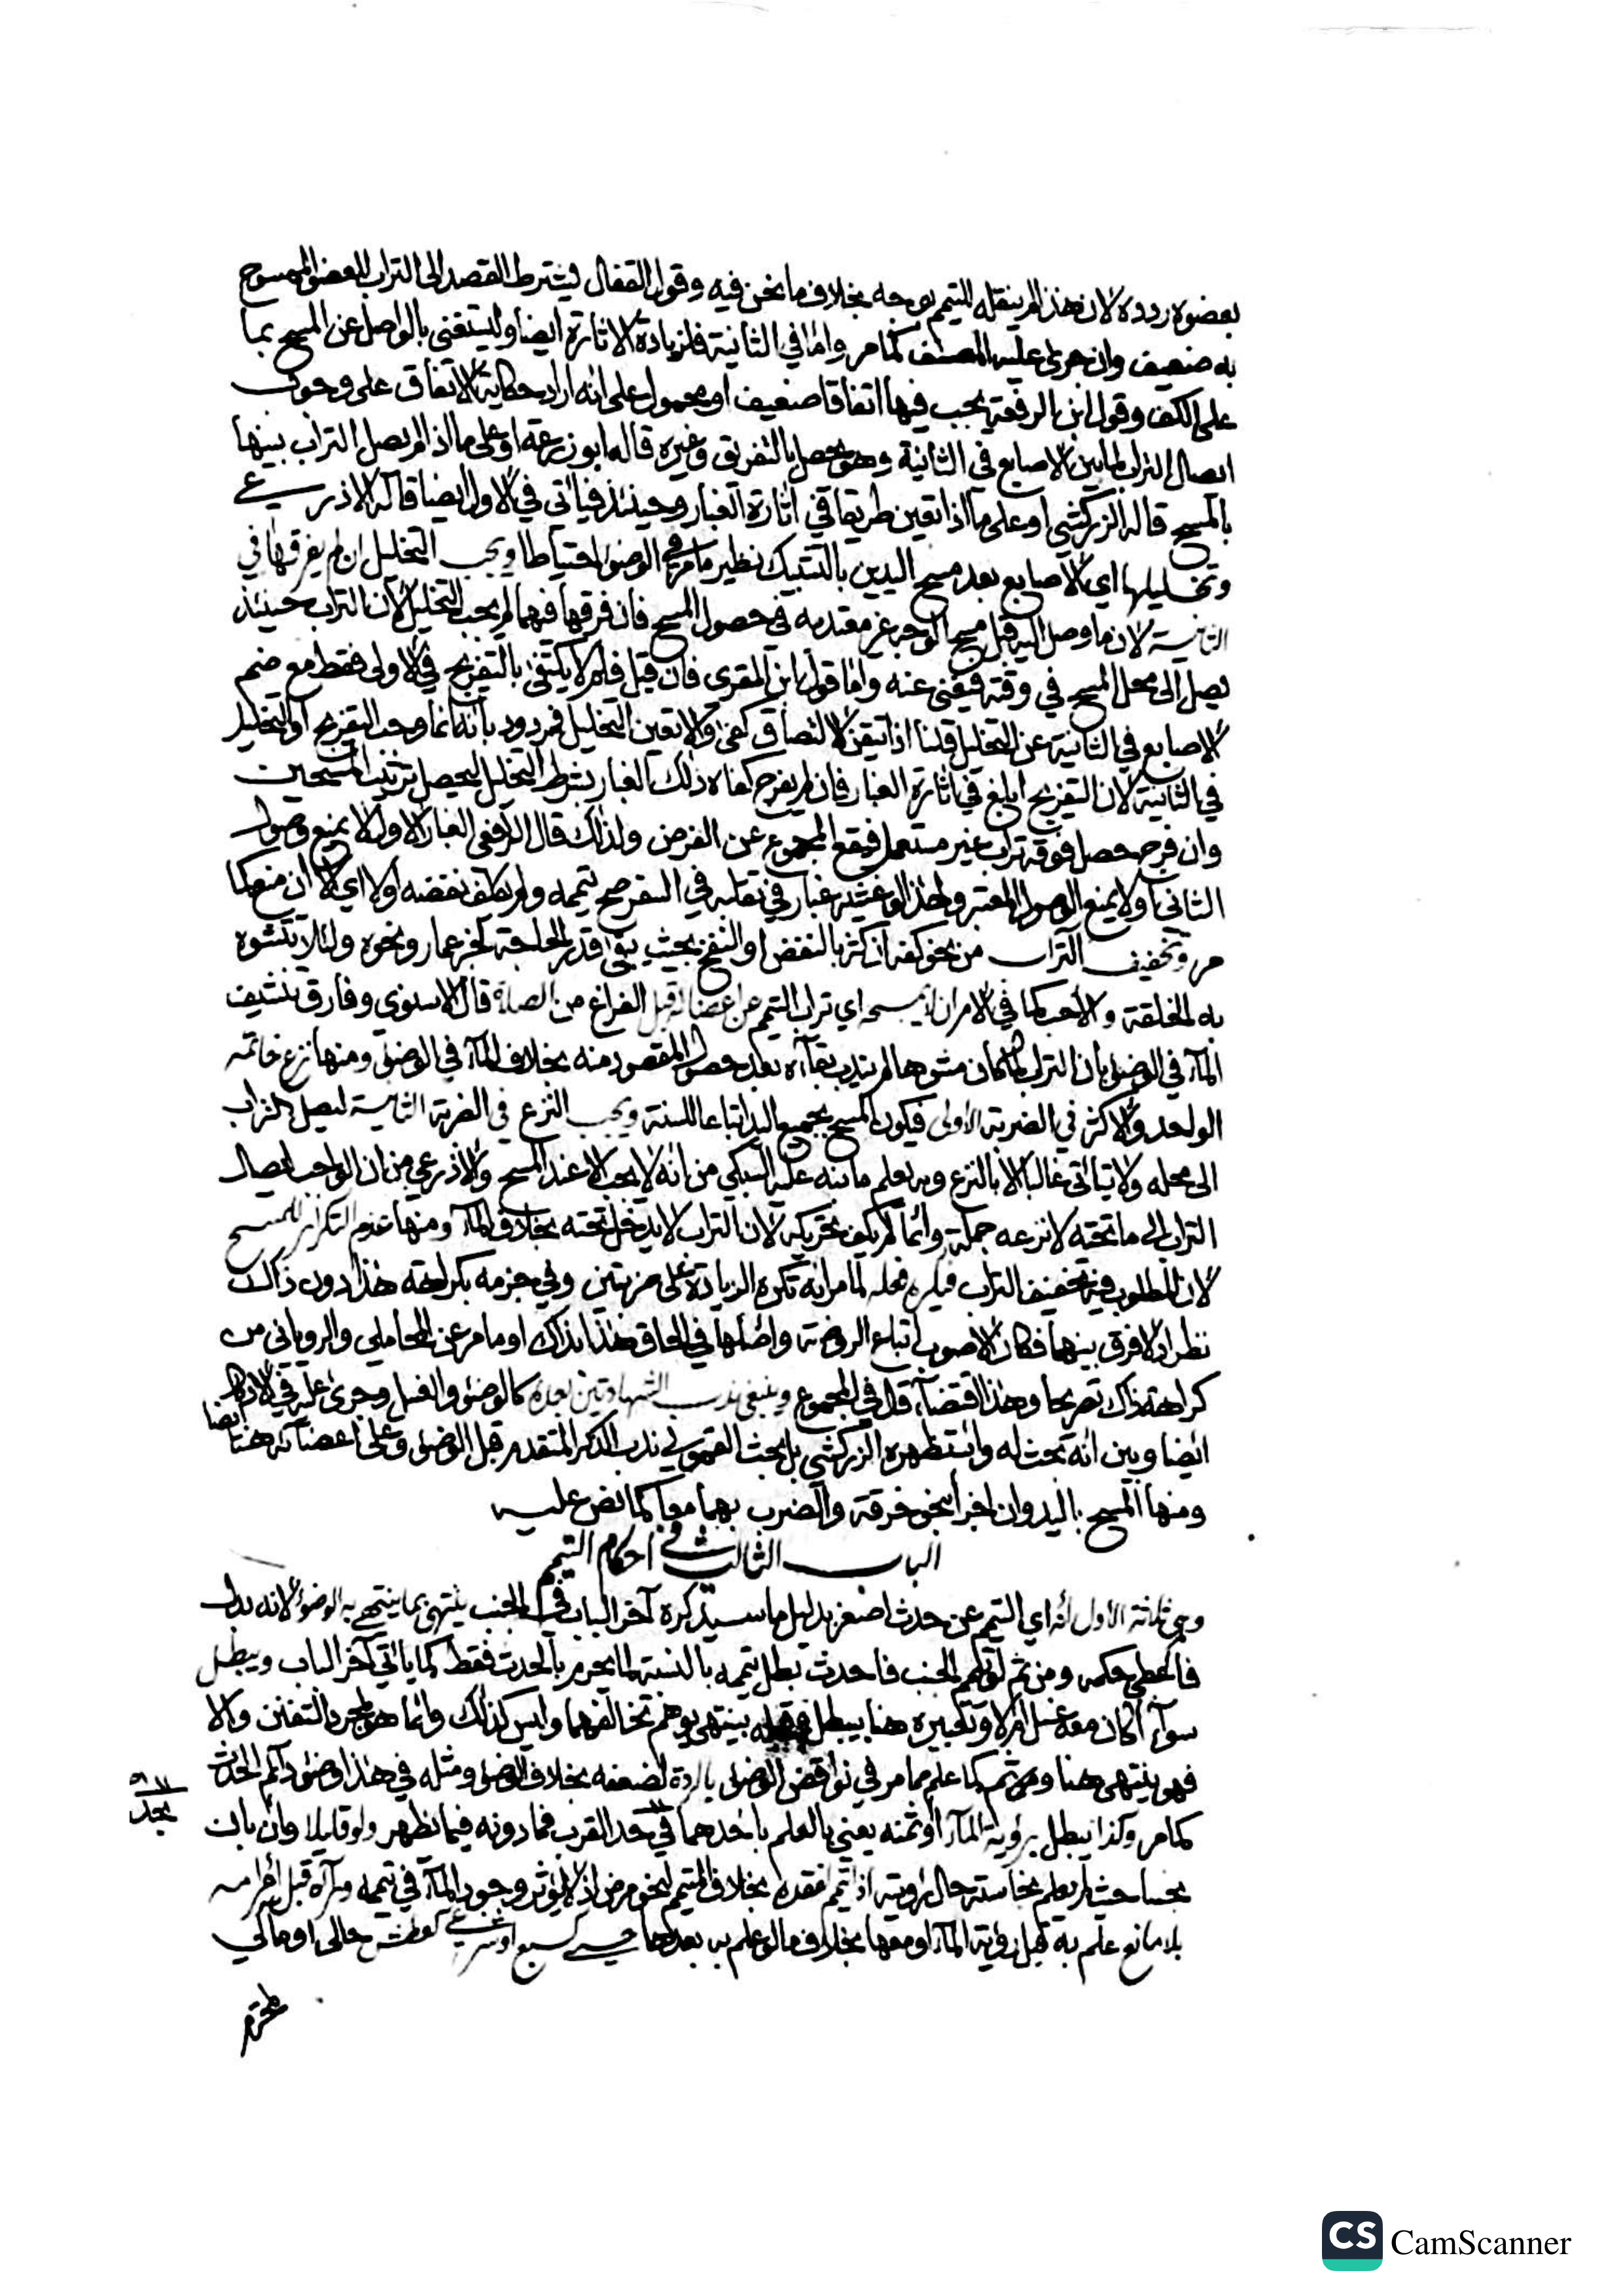 بعضوه ردده لان هذا لم ينقله للتيمم بوجه بخلاف ما نحن فيه وقول القفال يشترط القصد الى التراب للعضو الممسوح
به ضعيف وان جرى عليه المصنف كما مر واما في الثانية فلزيادة الاثارة ايضا وليستغنى بالواصل عن المسح بما
على الكف وقول ابن الرفعة يجب فيها اتفاقا ضعيف او محمول على انه اراد حكاية الاتفاق على وجوب
ايصال التراب لما بين الاصابع في الثانية وهو يحصل بالتفريق وغيره قاله ابو زرعة او على ما اذا لم يصل التراب بينها
بالمسح قاله الزركشي او على ما اذا تعين طريقا في اثارة الغبار وحينئذ فياتي في الاول ايضا قاله الاذرعي
وتخليلها اي الاصابع بعد مسح اليدين بالتشبيك نظير ما مر في الوضوء احتياطا ويجب التخليل ان لم يفرقها في
الثانية لان ما وصل اليه قبل مسح الوجه غير معتد به في حصول المسح فان فرقها فيهما لم يجب التخليل لان التراب حينئذ
يصل الى محل المسح في وقته فيغني عنه واما قول ابن المقرى فان قيل فلم لا يكتفى بالتفريج في الاولى فقط مع ضم
الاصابع في الثانية عن التخليل قلنا اذا تيقن الالتصاق كفى والا تعين التخليل فمردود بانه انما وجب التفريج او التخليل
في الثانية لان التفريج ابلغ في اثارة الغبار فان لم يفرج كفاه ذلك الغبار بشرط التخليل ليحصل ترتيب المسحتين
وان فرج حصل فوقه تراب غير مستعمل فيقع المجموع عن الفرض ولذلك قال الرافعي الغبار الاول لا يمنع وصول
الثاني اولا يمنع الوصول المعتبر ولهذا لو غشيه غبار في تقلبه في السفر صح تيممه ولم يكلف نفضه اولا اي الا ان منع كما
مر وتخفيف التراب من نحو كفه ان كثر بالنفض او النفخ بحيث يبقى قدر الحاجة لخبر عمار ونحوه ولئلا تتشوه
به الخلقة والاحب كما في الام ان لا يمسحه اي تراب التيمم عن اعضائه قبل الفراغ من الصلاة قال الاسنوي وفارق تنشيف
الماء في الوضوء بان التراب لما كان مشوها لم يندب بقاءه بعد حصول المقصود منه بخلاف الماء في الوضوء ومنها نزع خاتمه
الواحد والاكثر في الضربة الاولى فيكون المسح بجميع اليد اتباعا للسنة ويجب النزع في الضربة الثانية ليصل التراب
الى محله ولا يتاتى غالبا الا بالنزع وبه يعلم ما نبه عليه السبكي من انه لا يجب الا عند المسح والاذرعي من ان الواجب ايصال
التراب الى ما تحته لا نزعه جملة وانما لم يكف تحريكه لان التراب لا يدخل تحته بخلاف الماء ومنها عدم التكرار للمسح
لان المطلوب فيه تخفيف التراب فيكره فعله لما مر انه تكره الزيادة على ضربتين وفي جزمه بكراهة هذا دون ذاك
نظر اذ لا فرق بينهما فكان الاصوب اتباع الروضة واصلها في الحاق هذا بذاك او ما مر عن المحاملي والروياني من
كراهة ذاك تصريحا وهذا اقتضاء قال في المجموع وينبغي ندب الشهادتين بعده كالوضوء والغسل وجرى عليه في الاذكار
ايضا وبين انه بحث له واستظهره الزركشي بل بحث القمولي ندب الذكر المتقدم قبل الوضوء وعلى اعضائه هنا
ايضا
ومنها المسح باليد وان اجزأ بنحو خرقة والضرب بهما معا كما نص عليه
الباب الثالث في احكام التيمم
وهي ثلاثة الاول انه اي التيمم عن حدث اصغر بدليل ما سيذكره آخر الباب في الجنب ينتهي بما ينتهي به الوضوء لانه بدله
فاعطي حكمه ومن ثم لو تيمم الجنب فاحدث بطل تيممه بالنسبة لما يحرم بالحدث فقط كما ياتي آخر الباب ويبطل
سواء اكان معه غسل ام لا وتعبيره هنا بيبطل وقبله بينتهي يوهم تخالفهما وليس كذلك وانما هو لمجرد التفنن والا
فهو ينتهي هنا ومن ثم كما علم مما مر في نواقض الوضوء بالردة لضعفه بخلاف الوضوء ومثله في هذا وضوء دائم الحدث
كما مر وكذا يبطل برؤية الماء او ثمنه يعني بالعلم باحدهما في حد القرب فما دونه فيما يظهر ولو قليلا وان بان
نجسا حيث لم يعلم نجاسته حال رؤيته اذا تيمم لفقده بخلاف المتيمم لنحو مرض اذ لا يؤثر وجود الماء في تيممه ورآه قبل احرامه
بلا مانع علم به قبل رؤية الماء او معها بخلاف ما لو علم به بعدها حسي كسبع او شرعي كعطش حالي او مالي
محترم